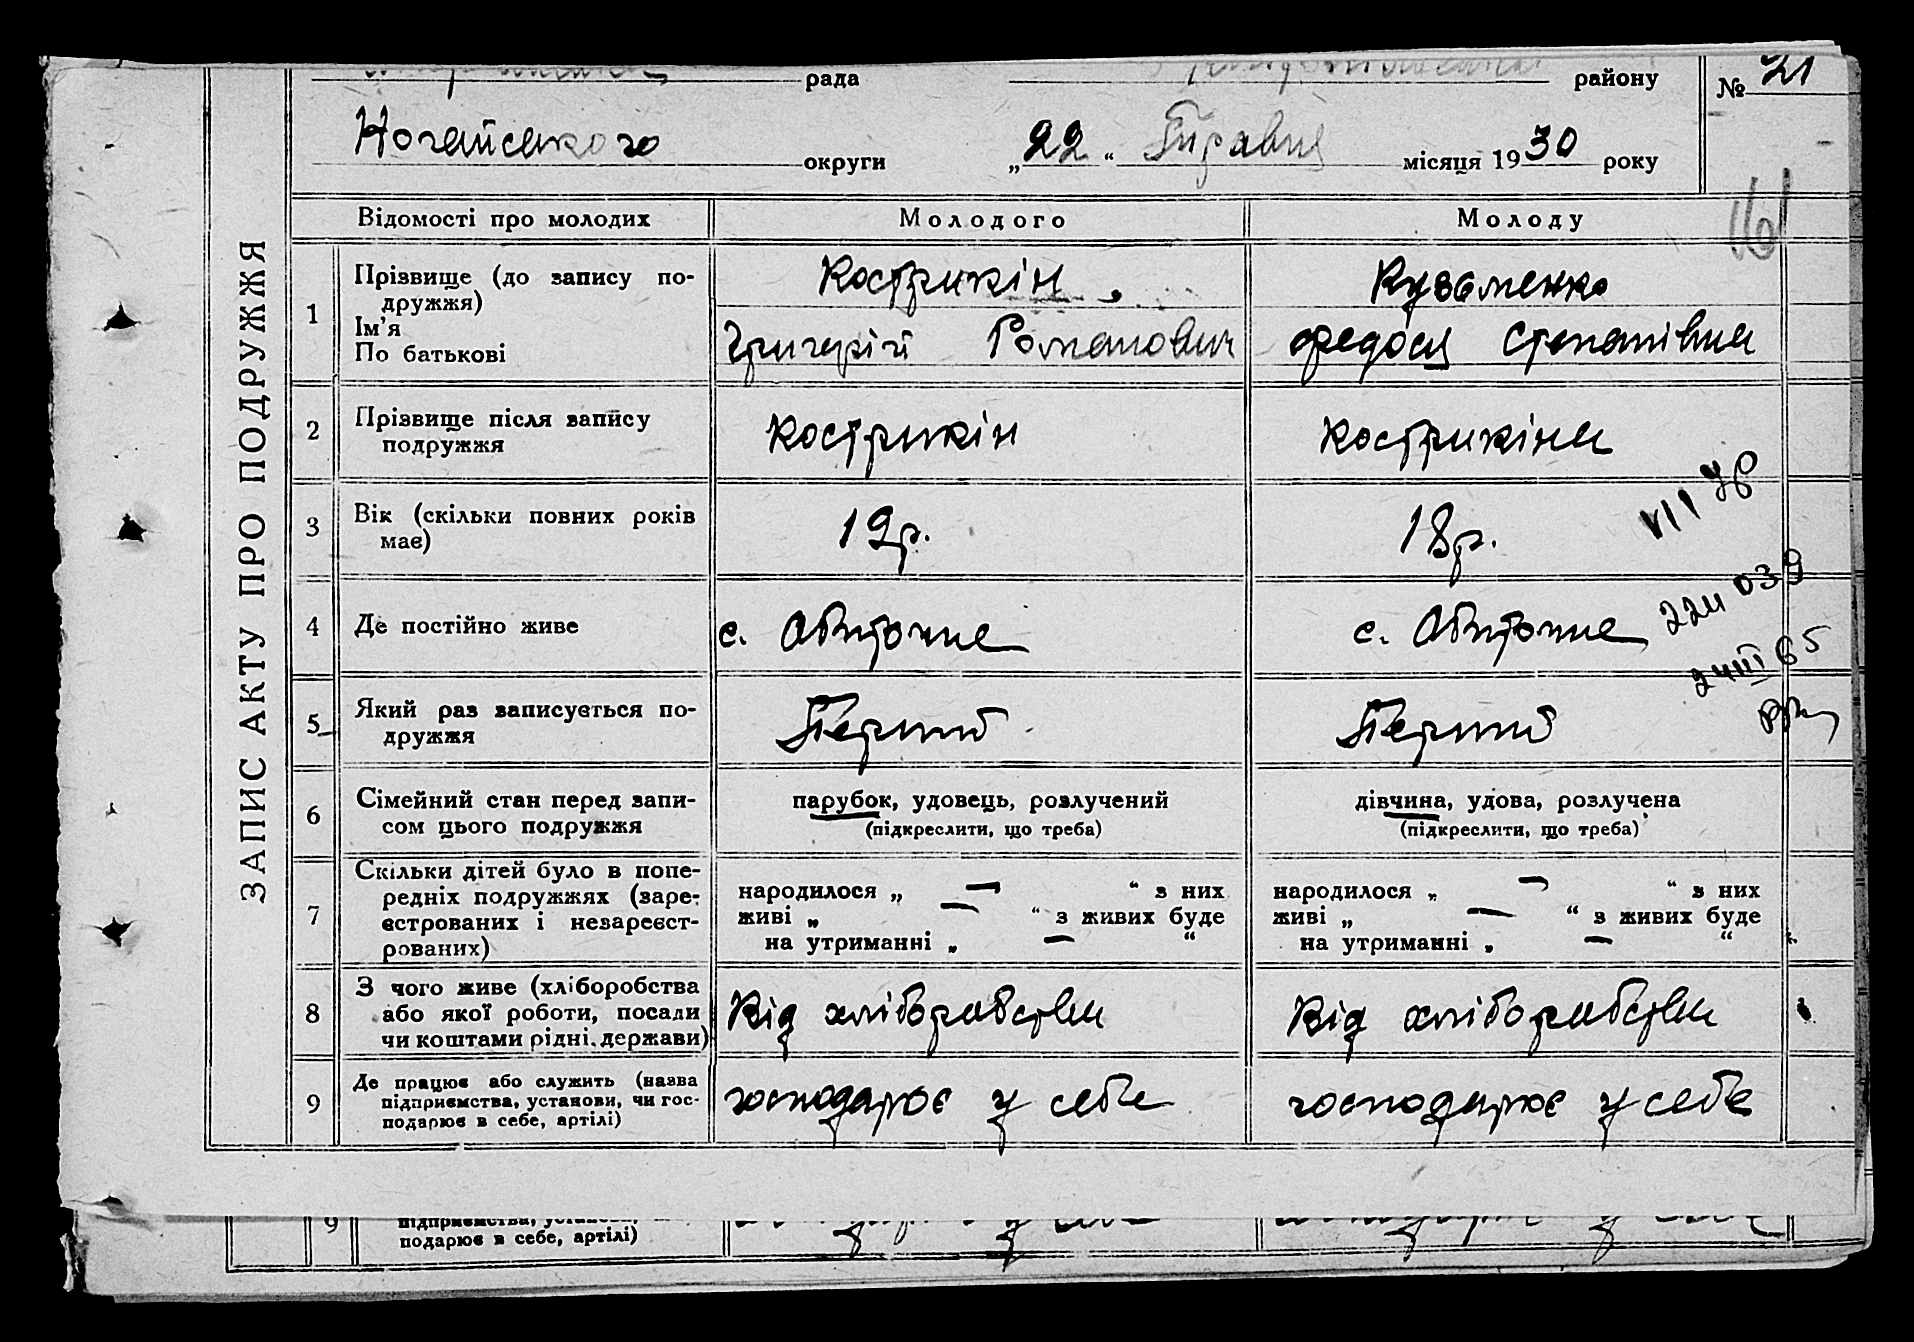 рада району № 21
Ногайського округи „22“ Травня місяця 1930 року
ЗАПИС АКТУ ПРО ПОДРУЖЖЯ
Відомості про молодих Молодого Молоду
161
1 Прізвище (до запису по-
дружжя)
Ім'я
По батькові
Кострикін
Григорій Романович
Кузьменко
Федося Степанівна
2 Прізвище після запису
подружжя
Кострикін
Кострикіна
3 Вік (скільки повних років
має)
19р.
18р.
4 Де постійно живе
с. Обиточне
с. Обиточне
5 Який раз записується по-
дружжя
Перший
Перший
6 Сімейний стан перед запи-
сом цього подружжя
парубок, удовець, розлучений
(підкреслити, що треба)
дівчина, удова, розлучена
(підкреслити, що треба)
7 Скільки дітей було в попе-
редніх подружжях (заре-
єстрованих і незареєст-
рованих)
народилося „ — “ з них
живі „ — “ з живих буде
на утриманні „ — “
народилося „ — “ з них
живі „ — “ з живих буде
на утриманні „ — “
8 З чого живе (хліборобства
або якої роботи, посади
чи коштами рідні, держави)
Від хліборобства
Від хліборобства
9 Де працює або служить (назва
підприємства, установи, чи гос-
подарює в себе, артілі)
господарює у себе
господарює у себе
9
подарює в себе, артілі)